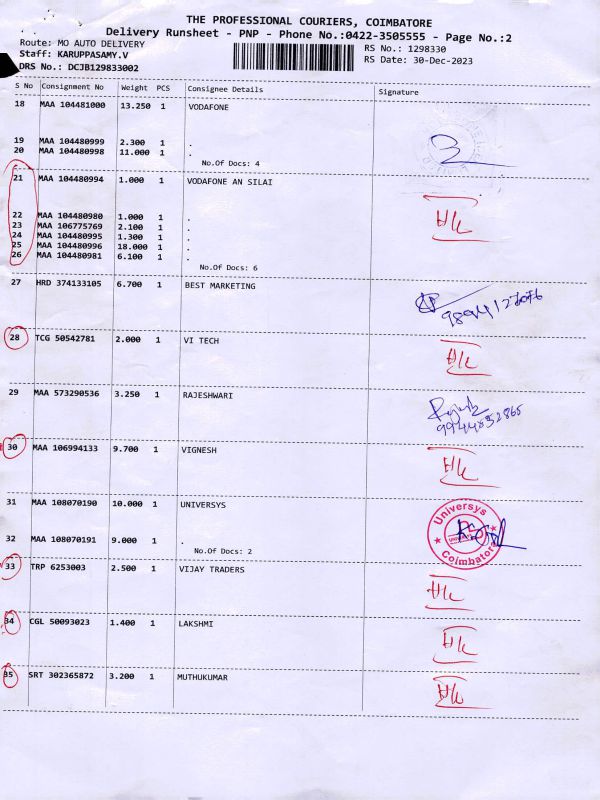 THE PROFESSIONAL COURIERS, COIMBATORE
Delivery Runsheet - PNP - Phone No.:0422-3505555 - Page No.:2
Route: MO AUTO DELIVERY RS No.: 1298330
Staff: KARUPPASAMY.V RS Date: 30-Dec-2023
DRS No.: DCJB129833002
S No Consignment No Weight PCS Consignee Details Signature
18 MAA 104481000 13.250 1 VODAFONE
19 MAA 104480999 2.300 1 .
20 MAA 104480998 11.000 1 .
No.Of Docs: 4
21 MAA 104480994 1.000 1 VODAFONE AN SILAI
22 MAA 104480980 1.000 1 .
23 MAA 106775769 2.100 1 .
24 MAA 104480995 1.300 1 .
25 MAA 104480996 18.000 1 .
26 MAA 104480981 6.100 1 .
No.Of Docs: 6
27 HRD 374133105 6.700 1 BEST MARKETING
28 TCG 50542781 2.000 1 VI TECH
29 MAA 573290536 3.250 1 RAJESHWARI
9944852865
30 MAA 106994133 9.700 1 VIGNESH
31 MAA 108070190 10.000 1 UNIVERSYS
Universys
Coimbatore
32 MAA 108070191 9.000 1 .
No.Of Docs: 2
33 TRP 6253003 2.500 1 VIJAY TRADERS
34 CGL 50093023 1.400 1 LAKSHMI
35 SRT 302365872 3.200 1 MUTHUKUMAR